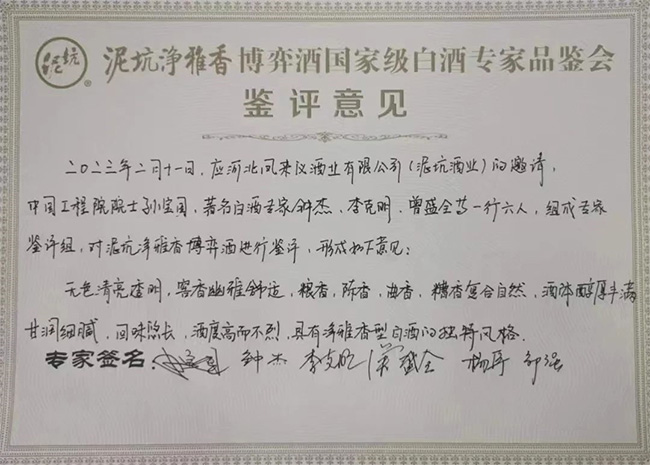 泥坑
®
泥坑净雅香博弈酒国家级白酒专家品鉴会
鉴评意见
二〇二三年二月十一日,应河北凤来仪酒业有限公司(泥坑酒业)的邀请,
中国工程院院士孙宝国,著名白酒专家钟杰、李克明、曾盛全等一行六人,组成专家
鉴评组,对泥坑净雅香博弈酒进行鉴评,形成如下意见:
无色清亮透明,窖香幽雅舒适,粮香,陈香,曲香,糟香复合自然,酒体醇厚丰满
甘润细腻,回味悠长,酒度高而不烈,具有净雅香型白酒的独特风格.
专家签名: 钟杰 李克明 曾盛全